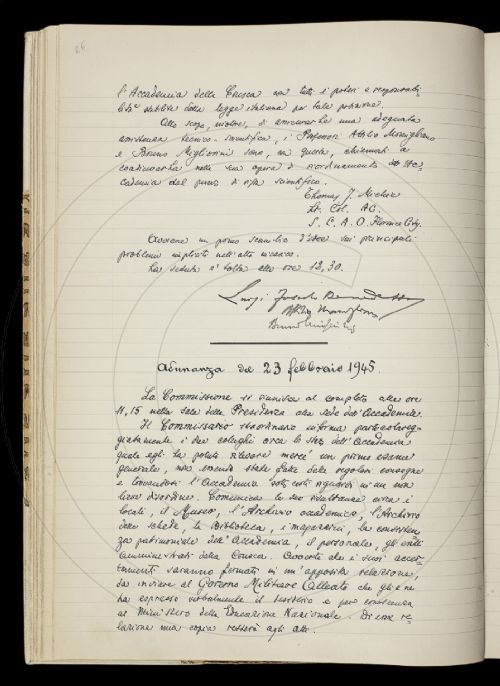 26
l'Accademia della Crusca con tutti i poteri e responsabi-
lità stabilite dalla legge italiana per tale posizione.
Allo scopo, inoltre, di assicurarle una adeguata
assistenza tecnico-scientifica, i Professori Attilio Momigliano
e Bruno Migliorini sono, con questa, chiamati a
coadiuvarla nella sua opera di riordinamento Ac-
cademia dal punto di vista scientifico.
Thomas J. Michie
Lt. Col. AC.
S. C. A. O. Florence City.
Avviene un primo scambio d'idee sui principali
problemi impliciti nell'alto incarico.
La seduta è tolta alle ore 12,30.
Luigi Foscolo Benedetto
Attilio Momigliano
Bruno Migliorini
Adunanza del 23 febbraio 1945.
La Commissione si riunisce al completo alle ore
11,15 nella sala della Presidenza alla sede dell'Accademia.
Il Commissario straordinario informa particolareg-
giatamente i due colleghi circa lo stato dell'Accademia
quale egli ha potuto rilevare mercé un primo esame
generale, non essendo state fatte delle regolari consegne
e trovandosi l'Accademia sotto certi riguardi in un non
lieve disordine. Comunica le sue risultanze circa i
locali, il Museo, l'Archivio accademico, l'Archivio
delle schede, la Biblioteca, i magazzini, la consisten-
za patrimoniale dell'Accademia, il personale, gli enti
amministrati dalla Crusca. Avverte che i suoi accer-
tamenti saranno fermati in un'apposita relazione,
da inviare al Governo Militare Alleato che gliene
ha espresso verbalmente il desiderio e per conoscenza
al Ministero della Educazione Nazionale. Di essa re-
lazione una copia resterà agli atti.